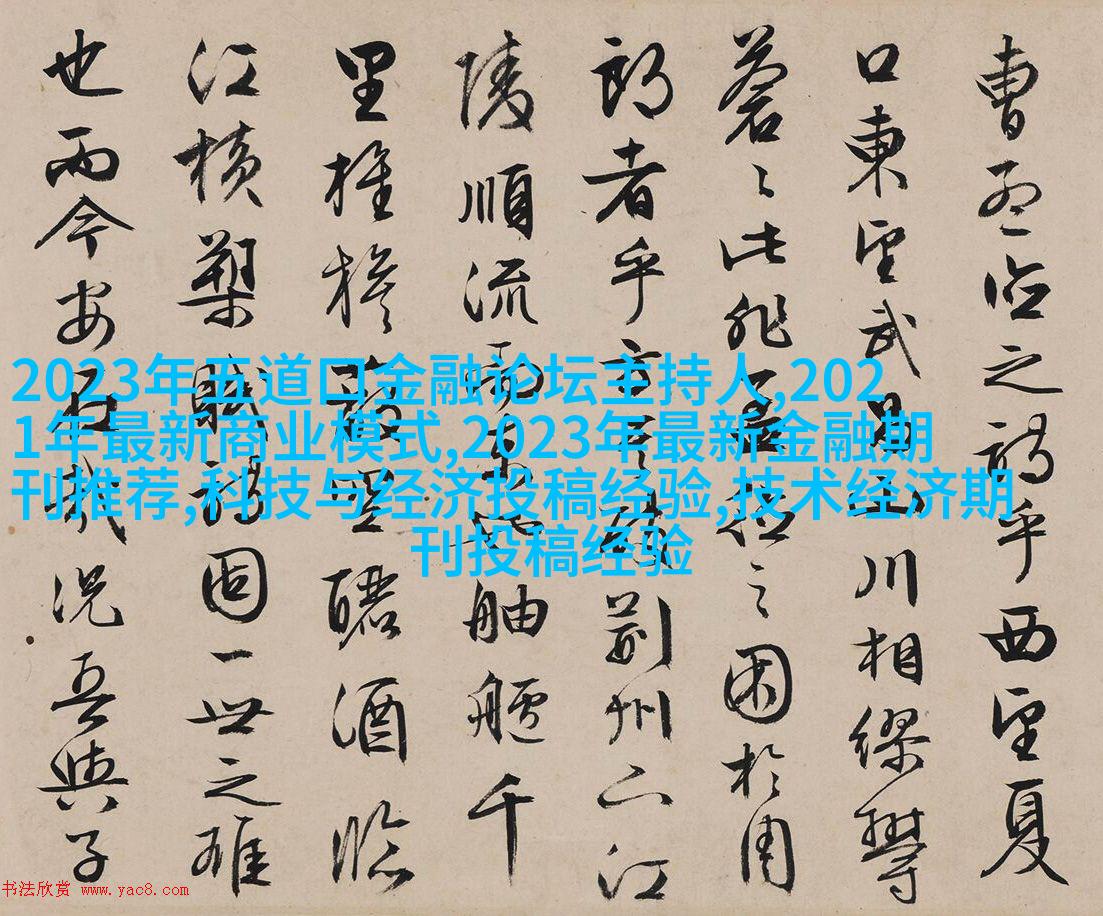 曹孟德之詩乎西望夏
口東望武昌山川相繆鬱
蒼々此非孟德之困於周
郎者乎方其破荊州下江
陵順流而東也舳艫千
里旌旗蔽空釃酒臨
江橫槊賦詩固一世之雄
也而今安在哉況吾與子
2023年五道口金融论坛主持人,202
1年最新商业模式,2023年最新金融期
刊推荐,科技与经济投稿经验,技术经济期
刊投稿经验
书法欣赏 www.yac8.com